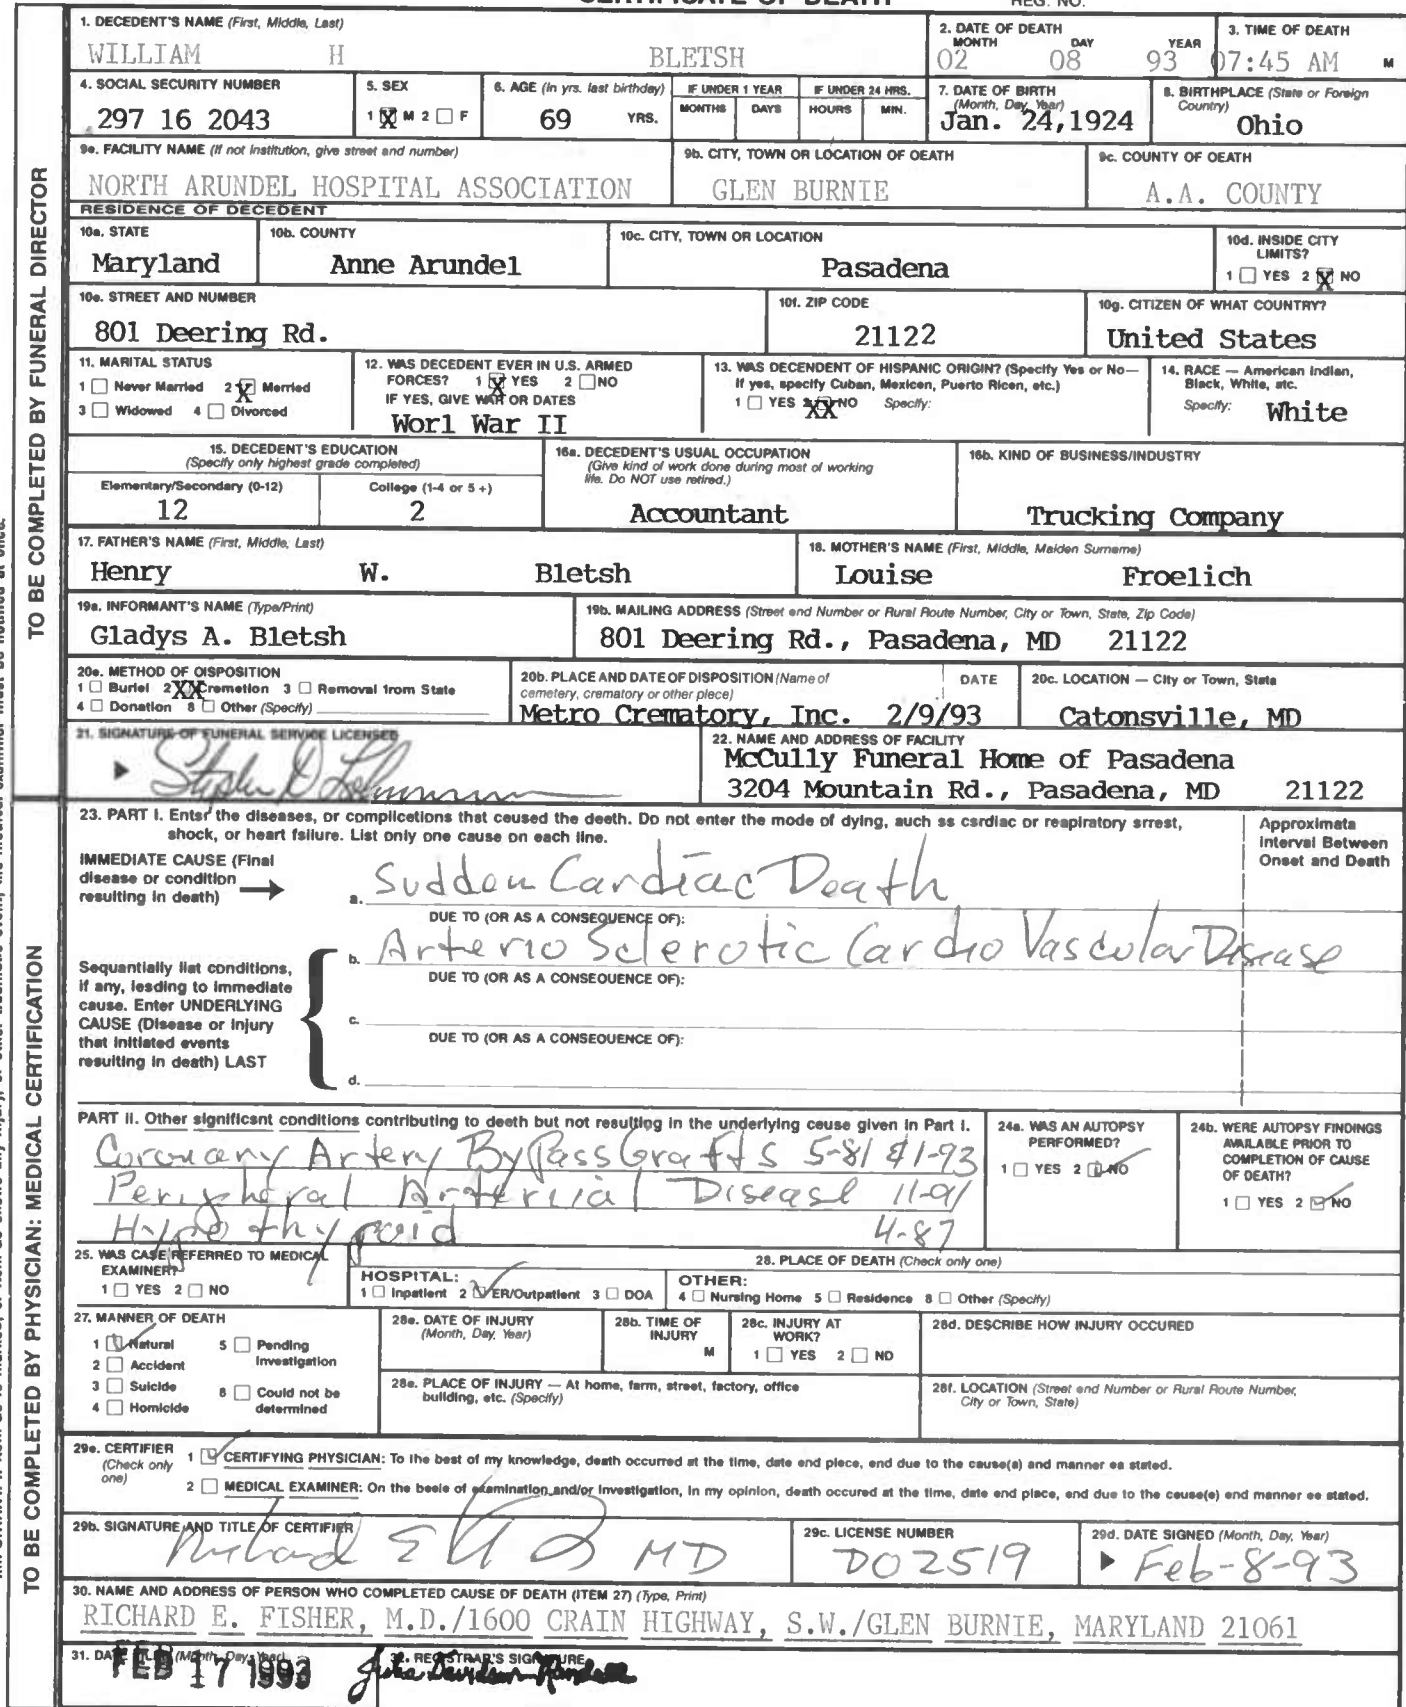 CERTIFICATE OF DEATH REG. NO.
1. DECEDENT'S NAME (First, Middle, Last)
WILLIAM H BLETSH
2. DATE OF DEATH
MONTH DAY YEAR
02 08 93
3. TIME OF DEATH
07:45 AM M
4. SOCIAL SECURITY NUMBER
297 16 2043
5. SEX
1 X M 2 □ F
6. AGE (In yrs. last birthday)
69 YRS.
IF UNDER 1 YEAR
MONTHS DAYS
IF UNDER 24 HRS.
HOURS MIN.
7. DATE OF BIRTH
(Month, Day, Year)
Jan. 24,1924
8. BIRTHPLACE (State or Foreign
Country)
Ohio
9a. FACILITY NAME (If not institution, give street and number)
NORTH ARUNDEL HOSPITAL ASSOCIATION
9b. CITY, TOWN OR LOCATION OF DEATH
GLEN BURNIE
9c. COUNTY OF DEATH
A.A. COUNTY
RESIDENCE OF DECEDENT
10a. STATE
Maryland
10b. COUNTY
Anne Arundel
10c. CITY, TOWN OR LOCATION
Pasadena
10d. INSIDE CITY
LIMITS?
1 □ YES 2 X NO
10e. STREET AND NUMBER
801 Deering Rd.
10f. ZIP CODE
21122
10g. CITIZEN OF WHAT COUNTRY?
United States
11. MARITAL STATUS
1 □ Never Married 2 X Married
3 □ Widowed 4 □ Divorced
12. WAS DECEDENT EVER IN U.S. ARMED
FORCES? 1 X YES 2 □ NO
IF YES, GIVE WAR OR DATES
Worl War II
13. WAS DECENDENT OF HISPANIC ORIGIN? (Specify Yes or No—
If yes, specify Cuban, Mexican, Puerto Rican, etc.)
1 □ YES 2 XX NO Specify:
14. RACE — American Indian,
Black, White, etc.
Specify: White
15. DECEDENT'S EDUCATION
(Specify only highest grade completed)
Elementary/Secondary (0-12) College (1-4 or 5 +)
12 2
16a. DECEDENT'S USUAL OCCUPATION
(Give kind of work done during most of working
life. Do NOT use retired.)
Accountant
16b. KIND OF BUSINESS/INDUSTRY
Trucking Company
17. FATHER'S NAME (First, Middle, Last)
Henry W. Bletsh
18. MOTHER'S NAME (First, Middle, Maiden Surname)
Louise Froelich
19a. INFORMANT'S NAME (Type/Print)
Gladys A. Bletsh
19b. MAILING ADDRESS (Street and Number or Rural Route Number, City or Town, State, Zip Code)
801 Deering Rd., Pasadena, MD 21122
20a. METHOD OF DISPOSITION
1 □ Burial 2 XX Cremation 3 □ Removal from State
4 □ Donation 8 □ Other (Specify)
20b. PLACE AND DATE OF DISPOSITION (Name of
cemetery, crematory or other place) DATE
Metro Crematory, Inc. 2/9/93
20c. LOCATION — City or Town, State
Catonsville, MD
21. SIGNATURE OF FUNERAL SERVICE LICENSEE
22. NAME AND ADDRESS OF FACILITY
McCully Funeral Home of Pasadena
3204 Mountain Rd., Pasadena, MD 21122
TO BE COMPLETED BY FUNERAL DIRECTOR
23. PART I. Enter the diseases, or complications that caused the death. Do not enter the mode of dying, such as cardiac or respiratory arrest,
shock, or heart failure. List only one cause on each line.
Approximate
Interval Between
Onset and Death
IMMEDIATE CAUSE (Final
disease or condition
resulting in death)
a. Sudden Cardiac Death
DUE TO (OR AS A CONSEQUENCE OF):
b. Arterio Sclerotic Cardio Vascular Disease
DUE TO (OR AS A CONSEQUENCE OF):
c.
DUE TO (OR AS A CONSEQUENCE OF):
d.
Sequentially list conditions,
if any, leading to immediate
cause. Enter UNDERLYING
CAUSE (Disease or Injury
that initiated events
resulting in death) LAST
PART II. Other significant conditions contributing to death but not resulting in the underlying cause given in Part I.
Coronary Artery ByPass Grafts 5-81 & 1-93
Peripheral Arterial Disease 11-91
Hypothyroid 4-87
24a. WAS AN AUTOPSY
PERFORMED?
1 □ YES 2 ☑ NO
24b. WERE AUTOPSY FINDINGS
AVAILABLE PRIOR TO
COMPLETION OF CAUSE
OF DEATH?
1 □ YES 2 ☑ NO
25. WAS CASE REFERRED TO MEDICAL
EXAMINER?
1 □ YES 2 □ NO
28. PLACE OF DEATH (Check only one)
HOSPITAL:
1 □ Inpatient 2 ☑ ER/Outpatient 3 □ DOA
OTHER:
4 □ Nursing Home 5 □ Residence 8 □ Other (Specify)
27. MANNER OF DEATH
1 ☑ Natural 5 □ Pending
Investigation
2 □ Accident
3 □ Suicide 8 □ Could not be
determined
4 □ Homicide
28a. DATE OF INJURY
(Month, Day, Year)
28b. TIME OF
INJURY
M
28c. INJURY AT
WORK?
1 □ YES 2 □ NO
28d. DESCRIBE HOW INJURY OCCURED
28e. PLACE OF INJURY — At home, farm, street, factory, office
building, etc. (Specify)
28f. LOCATION (Street and Number or Rural Route Number,
City or Town, State)
29a. CERTIFIER
(Check only
one)
1 ☑ CERTIFYING PHYSICIAN: To the best of my knowledge, death occurred at the time, date and place, and due to the cause(s) and manner as stated.
2 □ MEDICAL EXAMINER: On the basis of examination and/or investigation, in my opinion, death occured at the time, date and place, and due to the cause(s) and manner as stated.
29b. SIGNATURE AND TITLE OF CERTIFIER
Richard E MD
29c. LICENSE NUMBER
D02519
29d. DATE SIGNED (Month, Day, Year)
Feb-8-93
30. NAME AND ADDRESS OF PERSON WHO COMPLETED CAUSE OF DEATH (ITEM 27) (Type, Print)
RICHARD E. FISHER, M.D./1600 CRAIN HIGHWAY, S.W./GLEN BURNIE, MARYLAND 21061
31. DATE FILED (Month, Day, Year)
FEB 17 1993
32. REGISTRAR'S SIGNATURE
TO BE COMPLETED BY PHYSICIAN: MEDICAL CERTIFICATION